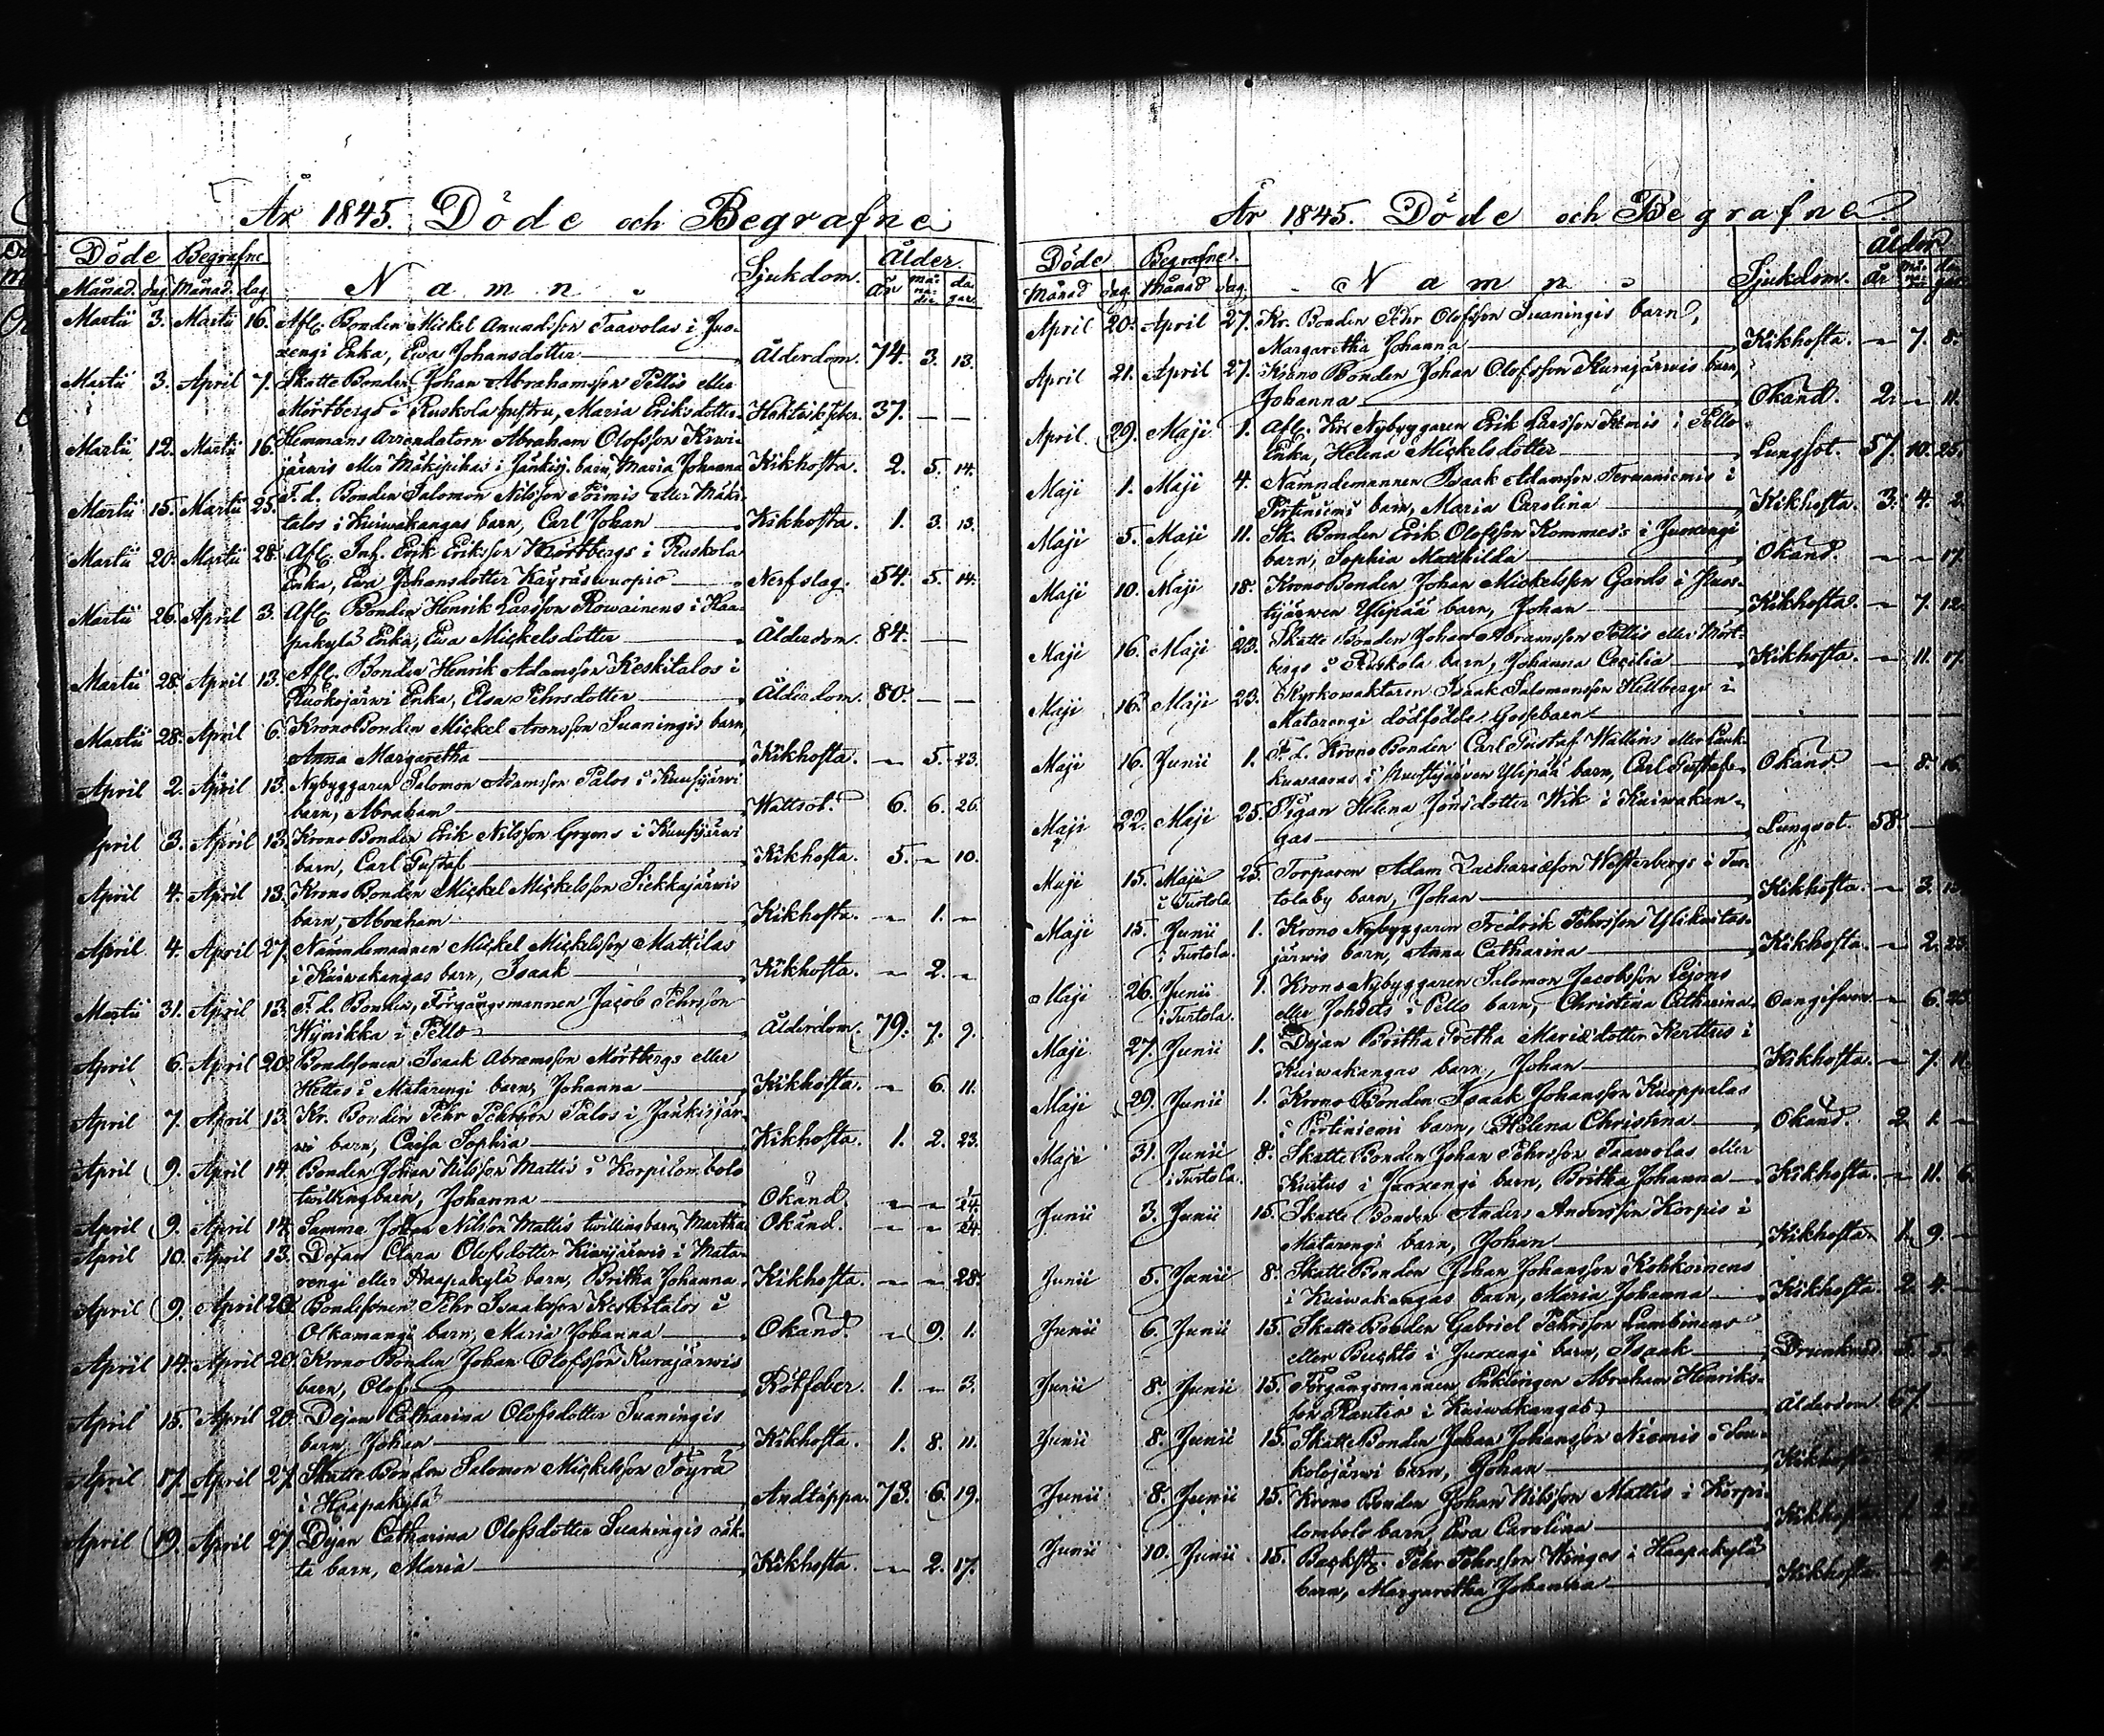 År 1845. Döde och Begrafne
Döde Begrafne Namn. Sjukdom. Ålder.
Månad. dag. Månad. dag. År må-na-der da-gar.
Martii 3. Martii 16. Afl. Bonden Mickel Anundsson Taavolas i Juo-
xengi Enka, Ewa Johansdotter Ålderdom. 74. 3. 13.
Martii 3. April 7. Skatte Bonden Johan Abrahamsson Pellis eller
Mörtbergs i Ruskola hustru, Maria Eriksdotter Hektikfeber. 37. — —
Martii 12. Martii 16. Hemmans Arrendatorn Abraham Olofsson Kiwi-
järwis eller Mäkipikas i Jänkisj. barn, Maria Johanna Kikhosta. 2. 5. 14.
Martii 15. Martii 25. F. d. Bonden Salomon Nilsson Poimis eller Mäki-
talos i Kuiwakangas barn, Carl Johan Kikhosta. 1. 3. 13.
Martii 20. Martii 28. Afl. Inh. Erik Eriksson Mörtbergs i Ruskola
Enka, Ewa Johansdotter Käyräswuopio Nerfslag. 54. 5. 14.
Martii 26. April 3. Afl. Bonden Henrik Larsson Rowainens i Haa-
pakylä Enka, Ewa Mickelsdotter Ålderdom. 84. — —
Martii 28. April 13. Afl. Bonden Henrik Adamsson Keskitalos i
Ruokojärwi Enka, Elsa Pehrsdotter Ålderdom. 80. — —
Martii 28. April 6. Krono Bonden Mickel Aronsson Suaningis barn,
Anna Margaretha Kikhosta. „ 5. 23.
April 2. April 13. Nybyggaren Salomon Adamsson Palos i Kuusijärwi
barn, Abraham Wattsot. 6. 6. 26.
April 3. April 13. Krono Bonden Erik Nilsson Gryms i Kuusijärwi
barn, Carl Gustaf Kikhosta. 5. „ 10.
April 4. April 13. Krono Bonden Mickel Mickelsson Siekkajärwis
barn, Abraham Kikhosta. „ 1. „
April 4. April 27. Nämndemannen Mickel Mickelsson Mattilas
i Kuiwakangas barn, Isaak Kikhosta. „ 2. „
Martii 31. April 13. F. d. Bonden, Förgångsmannen Jacob Pehrsson
Wynikka i Pello Ålderdom. 79. 7. 9.
April 6. April 20. Bondesonen Isaak Abramsson Mörtbergs eller
Hettes i Matarengi barn, Johanna Kikhosta. „ 6. 11.
April 7. April 13. Kr. Bonden Pehr Pehrsson Palos i Jänkisjär-
wi barn, Caisa Sophia Kikhosta. 1. 2. 23.
April 9. April 14. Bonden Johan Nilsson Mattis i Korpilombolo
twillingbarn, Johanna Okänd. „ „
April 9. April 14. Samme Johan Nilsson Mattis twillingbarn, Martha Okänd. „ „
April 10. April 13. Dejan Clara Olofsdotter Kiwijärwis i Mata-
rengi eller Haapakylä barn, Britha Johanna Kikhosta. „ „ 28.
April 9. April 20. Bondesonen Pehr Isaaksson Keskitalos i
Olkamangi barn, Maria Johanna Okänd. „ 9. 1.
April 14. April 20. Krono Bonden Johan Olofsson Kurajärwis
barn, Olof Rötfeber. 1. „ 3.
April 15. April 20. Dejan Catharina Olofsdotter Suaningis
barn, Johan Kikhosta. 1. 8. 11.
April 17. April 27. Skatte Bonden Salomon Mickelsson Töyrä
i Haapakylä Andtäppa. 73. 6. 19.
April 19. April 27. Dejan Catharina Olofsdotter Suaningis oäk-
ta barn, Maria Kikhosta. „ 2. 17.
År 1845. Döde och Begrafne
Döde Begrafne. Namn Sjukdom. Ålder
Månad dag. Månad dag. År
April 20. April 27. Kr. Bonden Pehr Olofsson Suaningis barn,
Margaretha Johanna Kikhosta. „ 7. 8.
April 21. April 27. Krono Bonden Johan Olofsson Kurajärwis barn,
Johanna Okänd. 2. „ 11.
April 29. Maji 1. Afl. Kr. Nybyggaren Erik Larsson Kemis i Pello
Enka, Helena Mickelsdotter Lungsot. 57. 10. 25.
Maji 1. Maji 4. Nämndemannen Isaak Adamsson Terwaniemis i
Pirtiniemi barn, Maria Carolina Kikhosta. 3. 4. 2.
Maji 5. Maji 11. Sk. Bonden Erik Olofsson Kommes's i Juoxengi
barn, Sophia Mathilda Okänd. „ „ 17.
Maji 10. Maji 18. Krono Bonden Johan Mickelsson Gards i Kuus-
tijärwen Ylipää barn, Johan Kikhosta. „ 7. 12.
Maji 16. Maji 23. Skatte Bonden Johan Abramsson Pellis eller Mört-
bergs i Ruskola barn, Johanna Cecilia Kikhosta. „ 11. 17.
Maji 16. Maji 23. Kyrkowaktaren Isaak Salomonsson Hellbergs i
Matarengi dödfödde Gossebarn
Maji 16. Junii 1. F. d. Krono Bonden Carl Gustaf Wallins eller Lauk-
kuwaaras i Kuustijärwen Ylipää barn, Carl Gustaf Okänd „ 8. 16.
Maji 22. Maji 25. Pigan Helena Jönsdotter Wik i Kuiwakan-
gas Lungsot. 58. —
Maji 15. Maji i Turtola 25. Torparen Adam Zachariasson Westerbergs i Tur-
tolaby barn, Johan Kikhosta. „ 3.
Maji 15. Junii i Turtola. 1. Krono Nybyggaren Fredrik Pehrsson Ylikuitas-
järwis barn, Anna Catharina Kikhosta. „ 2. 23.
Maji 26. Junii i Turtola. 1. Krono Nybyggaren Salomon Jacobsson Lejons
eller Johdets i Pello barn, Christina Catharina „ 6.
Maji 27. Junii 1. Dejan Britha Gretha Mariædotter Kerttus i
Kuiwakangas barn, Johan Kikhosta. „ 7. 11.
Maji 29. Junii 1. Krono Bonden Isaak Johansson Kuoppalas
i Pirtiniemi barn, Helena Christina Okänd. 2. 1. —
Maji 31. Junii i Turtola. 8. Skatte Bonden Johan Pehrsson Taawolas eller
Kuitus i Juoxengi barn, Britha Johanna Kikhosta. „ 11. 6.
Junii 3. Junii 15. Skatte Bonden Anders Andersson Korpis i
Matarengi barn, Johan Kikhosta. 1. 9. —
Junii 5. Junii 8. Skatte Bonden Johan Johansson Kohkoinens
i Kuiwakangas barn, Maria Johanna Kikhosta. 2. 4. —
Junii 6. Junii 15. Skatte Bonden Gabriel Pehrsson Lambinens
eller Buchts i Juoxengi barn, Isaak Drunknad. 5. 5.
Junii 8. Junii 15. Förgångsmannen, Enklingen Abraham Henriks-
son Rautio i Kuiwakangas Ålderdom. 67.
Junii 8. Junii 15. Skatte Bonden Johan Johansson Niemis i Lou-
kolojärwi barn, Johan Kikhosta.
Junii 8. Junii 15. Krono Bonden Johan Nilsson Mattis i Korpi-
lombolo barn, Ewa Carolina Kikhosta.
Junii 10. Junii 15. Backst. Pehr Pehrsson Winges i Haapakylä
barn, Margaretha Johanna Kikhosta.